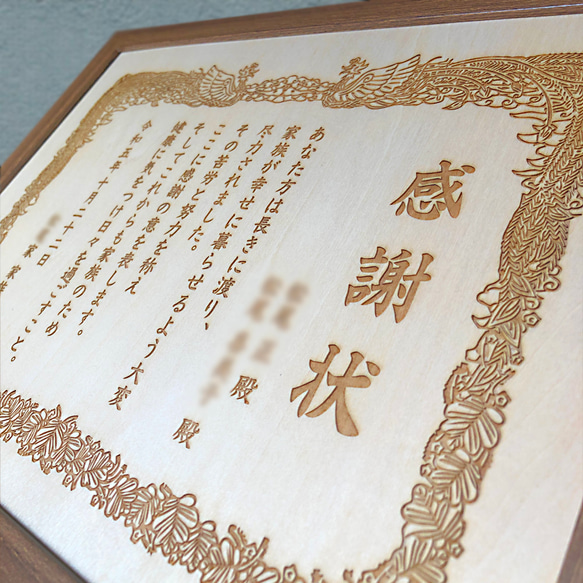 感謝状
殿
殿
あなた方は長きに渡り、
家族が幸せに暮らせるよう大変
尽力されました。
その苦労と努力を称え
ここに感謝の意を表します。
そしてこれからも家族のため
健康に気をつけ日々を過ごすこと。
令和五年 十月二十二日
家 家族